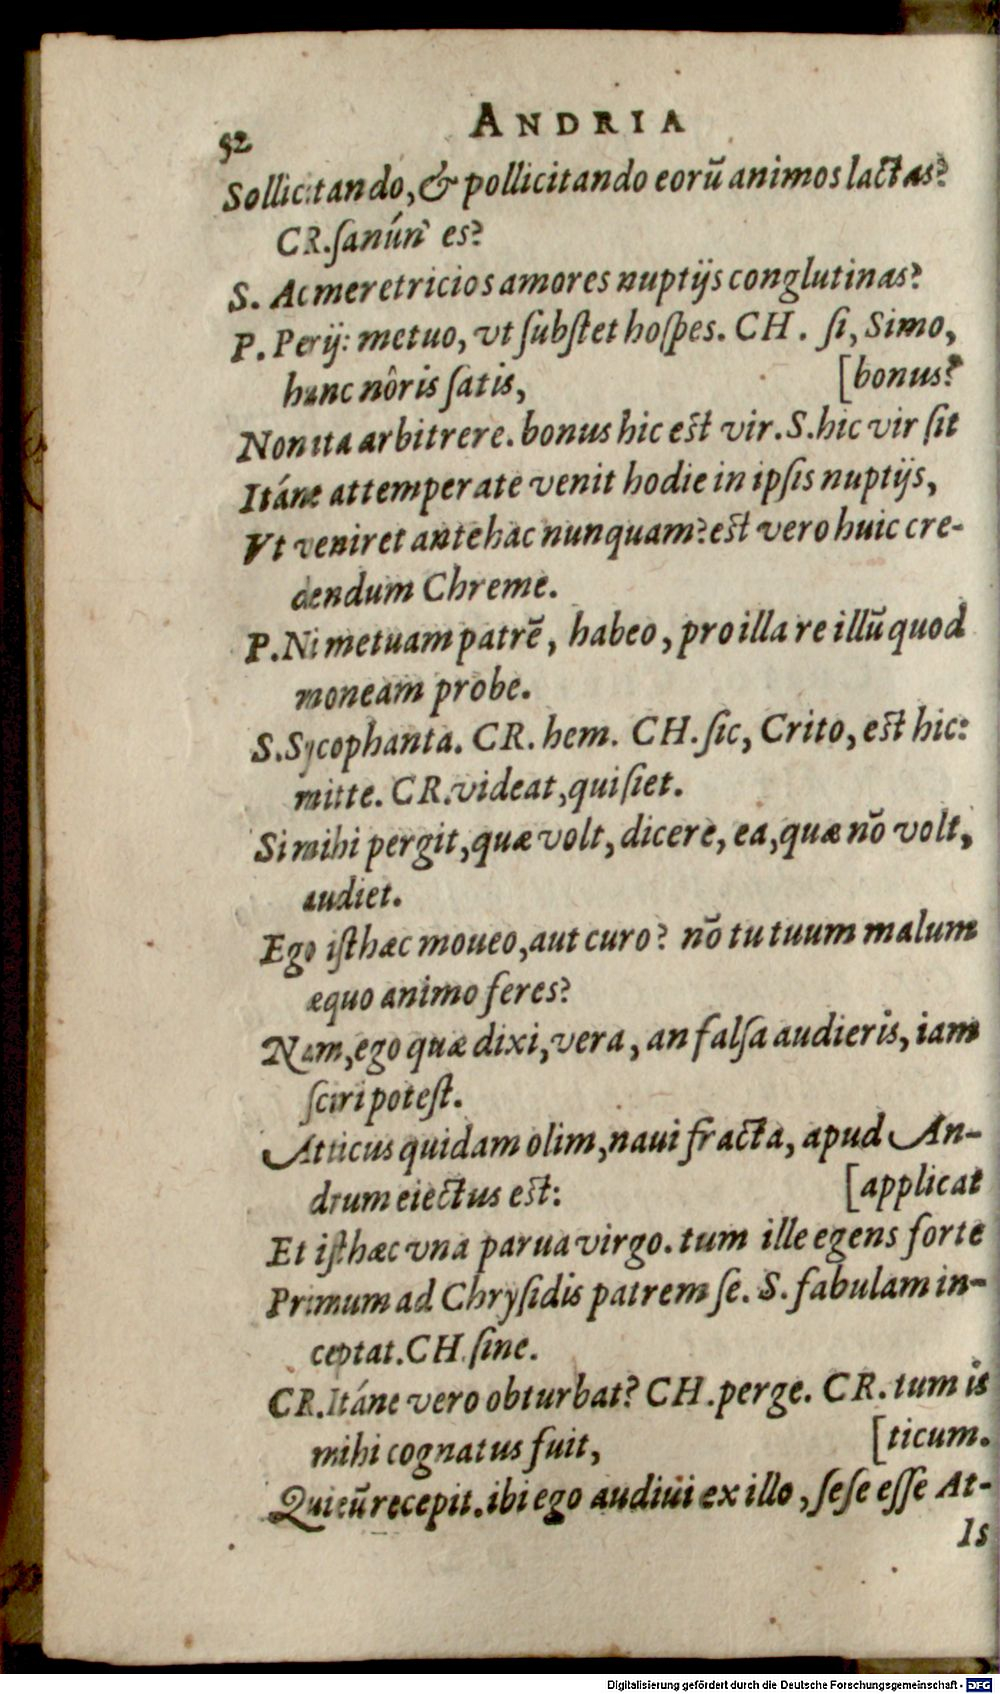 52
ANDRIA
Sollicitando, & pollicitando eorũ animos lactas?
CR. ſanún' es?
S. Ac meretricios amores nuptijs conglutinas?
P. Perij: metuo, vt ſubſtet hoſpes. CH. ſi, Simo,
hunc nôris ſatis, [bonus?
Non ita arbitrere. bonus hic est vir. S. hic vir ſit
Itáne attemperate venit hodie in ipſis nuptijs,
Vt veniret antehac nunquam? est vero huic cre-
dendum Chreme.
P. Ni metuam patrẽ, habeo, pro illa re illũ quod
moneam probe.
S. Sycophanta. CR. hem. CH. ſic, Crito, est hic:
mitte. CR. videat, qui ſiet.
Si mihi pergit, quæ volt, dicere, ea, quæ nõ volt,
audiet.
Ego iſthæc moueo, aut curo? nõ tu tuum malum
æquo animo feres?
Nam, ego quæ dixi, vera, an falſa audieris, iam
ſciri poteſt.
Atticus quidam olim, naui fracta, apud An-
drum eiectus est: [applicat
Et iſthæc vna parua virgo. tum ille egens forte
Primum ad Chryſidis patrem ſe. S. fabulam in-
ceptat. CH. ſine.
CR. Itáne vero obturbat? CH. perge. CR. tum is
mihi cognatus fuit, [ticum.
Qui eũ recepit. ibi ego audiui ex illo, ſeſe eſſe At-
Is
Digitalisierung gefördert durch die Deutsche Forschungsgemeinschaft - DFG